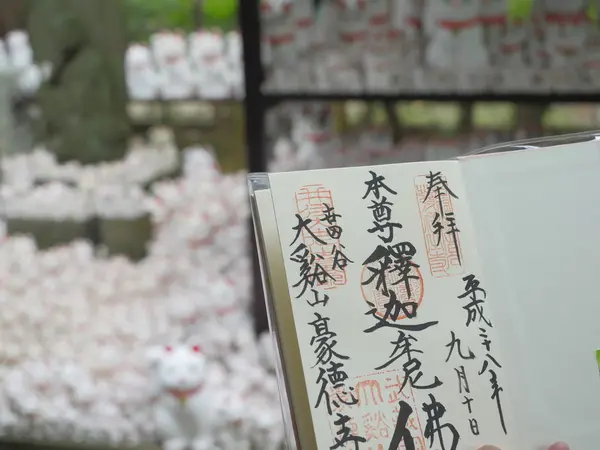 奉拝
平成二十八年
九月十日
本尊
釋迦牟尼佛
世田谷
大谿山
豪徳寺